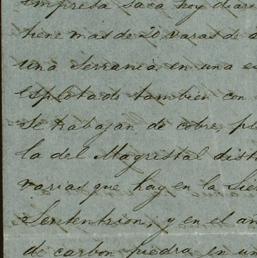 empresa saca hoy diari
tiene mas de 20 varas de a
una serrania, en una e
esplotado tambien con
se trabajan de cobre, pl
la del Magristal dist
varias que hay en la Sie
Sententrion, y en el an
de carbon piedra en un